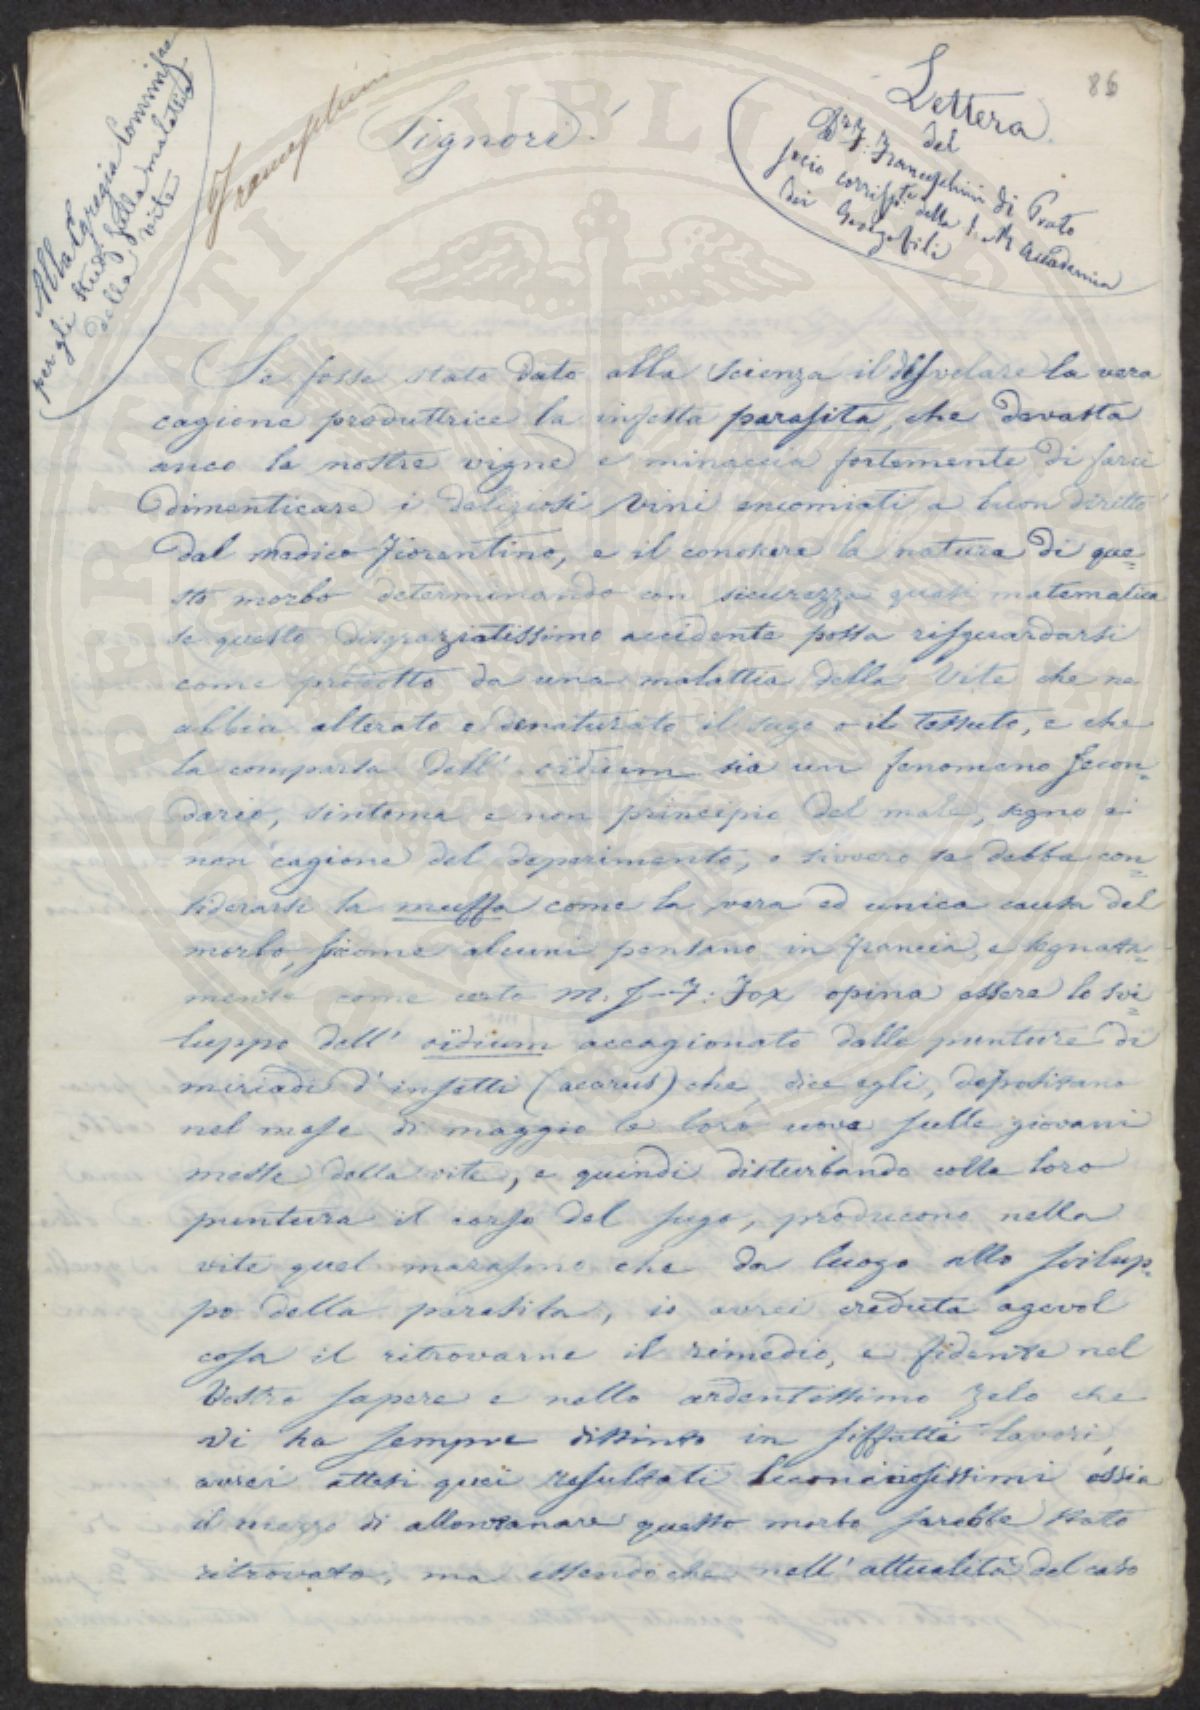 86
Lettera
del
Dr. F: Franceschini di Prato
socio corrispte. della I. e R Accademia
dei Georgofili
Alla Egregia Commisne
per gli studj sulla malattia
della vite
Franceschini
Signori!
Se fosse stato dato alla Scienza il disvelare la vera
cagione produttrice la infesta parasita, che devasta
anco le nostre vigne e minaccia fortemente di farci
dimenticare i deliziosi vini encomiati a buon diritto
dal medico Fiorentino, e il conoscere la natura di que=
sto morbo determinando con sicurezza quasi matematica
se questo disgraziatissimo accidente possa risguardarsi
come prodotto da una malattia della Vite che ne
abbia alterato e denaturato il sugo o il tessuto, e che
la comparsa dell' oïdium sia un fenomeno secon=
dario, sintoma e non principio del male, segno e
non cagione del deperimento, o sivvero se debba con=
siderarsi la muffa come la vera ed unica causa del
morbo, siccome alcuni pensano in Francia, e segnata=
mente come certo M. J-F: Fox opina essere lo svi=
luppo dell' oïdium accagionato dalle punture di
miriadi d' insetti (acarus) che, dice egli, depositano
nel mese di maggio le loro uova sulle giovani
messe della vite, e quindi disturbando colle loro
puntura il corso del sugo, producono nella
vite quel marasmo che da luogo allo svilup=
po della parasita, io avrei creduta agevol
cosa il ritrovarne il rimedio, e fidente nel
Vostro sapere e nello ardentissimo zelo che
Vi ha sempre distinto in siffatti lavori,
avrei attesi quei resultati luminosissimi ossia
il mezzo di allontanare questo morbo sarebbe stato
ritrovato, ma essendo che nell' attualità del caso